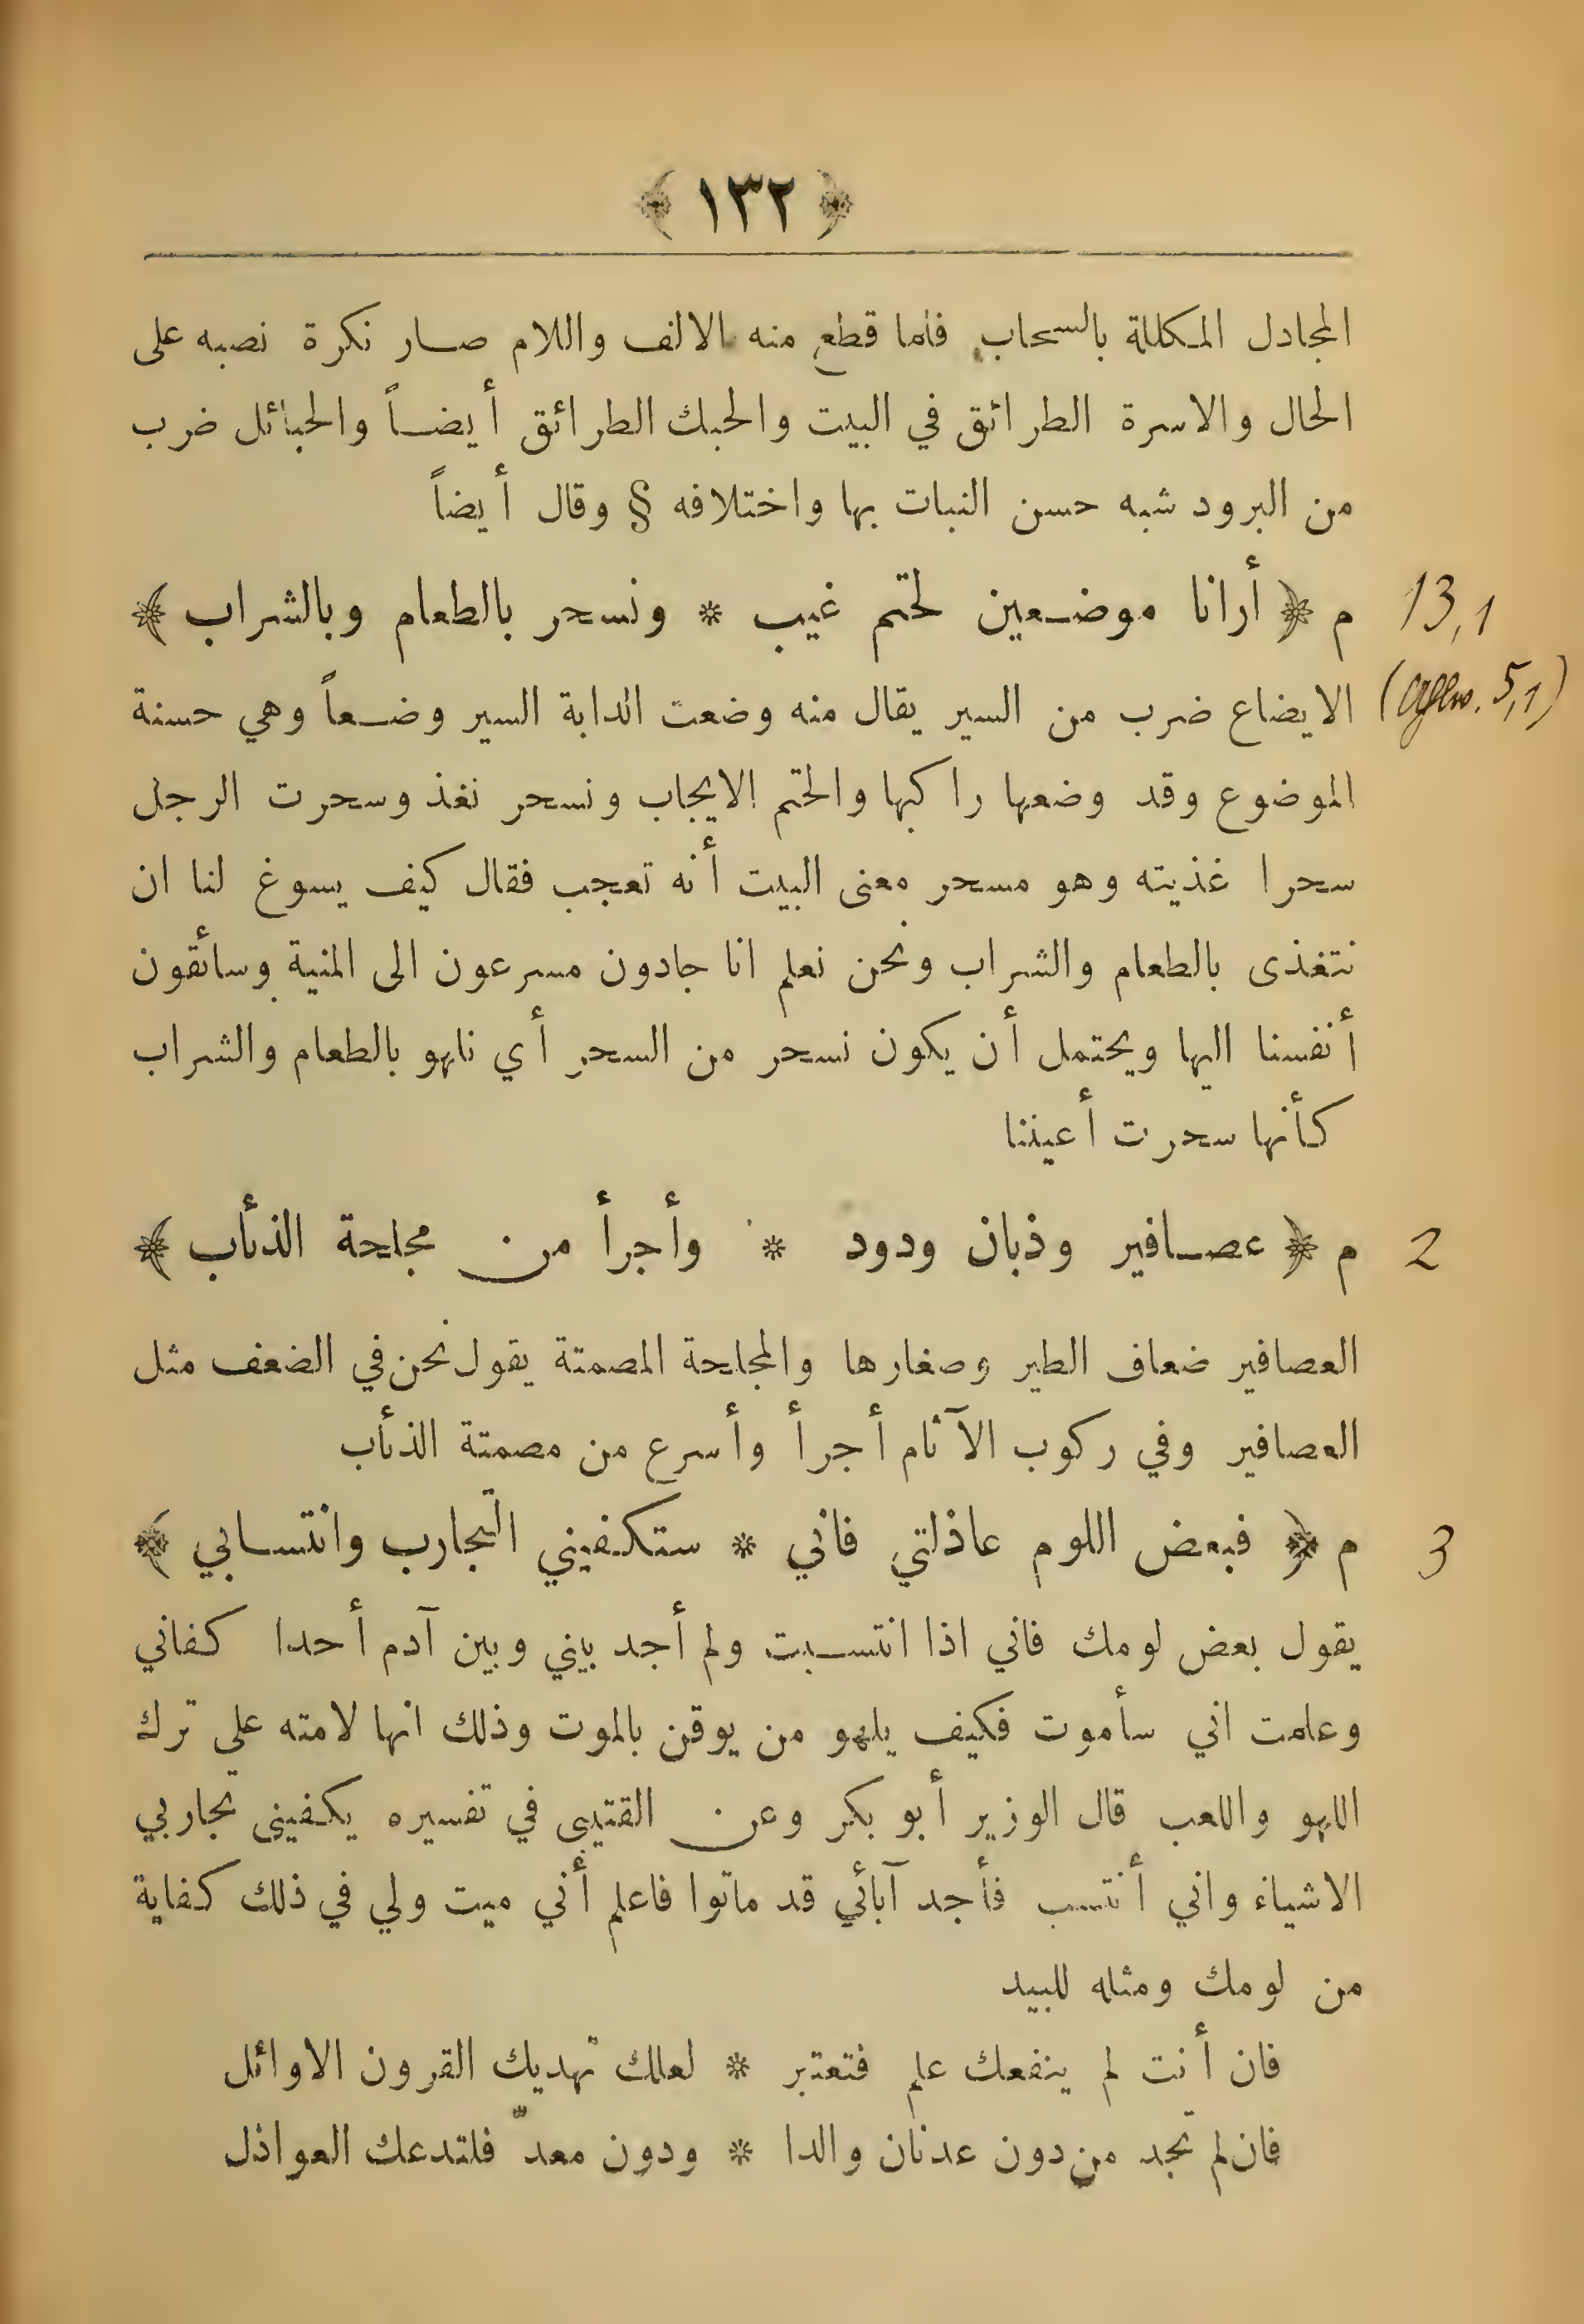 ﴿ ١٣٢ ﴾
المجادل المكللة بالسحاب فلما قطع منه الالف واللام صار نكرة نصبه على
الحال والاسرة الطرائق في البيت والحبك الطرائق أيضاً والحبائل ضرب
من البرود شبه حسن النبات بها واختلافه § وقال أيضاً
م ﴿ أرانا موضعين لحتم غيب * ونسحر بالطعام وبالشراب ﴾ 13,1
الايضاع ضرب من السير يقال منه وضعت الدابة السير وضعاً وهي حسنة (Ahlw. 5,1)
الموضوع وقد وضعها راكبها والحتم الايجاب ونسحر نغذ وسحرت الرجل
سحرا غذيته وهو مسحر معنى البيت أنه تعجب فقال كيف يسوغ لنا ان
نتغذى بالطعام والشراب ونحن نعلم انا جادون مسرعون الى المنية وسائقون
أنفسنا اليها ويحتمل أن يكون نسحر من السحر أي نلهو بالطعام والشراب
كأنها سحرت أعيننا
م ﴿ عصافير وذبان ودود * وأجرأ من مجلحة الذئاب ﴾ 2
العصافير ضعاف الطير وصغارها والمجلحة المصمتة يقول نحن في الضعف مثل
العصافير وفي ركوب الآثام أجرأ وأسرع من مصمتة الذئاب
م ﴿ فبعض اللوم عاذلتي فاني * ستكفيني التجارب وانتسابي ﴾ 3
يقول بعض لومك فاني اذا انتسبت ولم أجد بيني وبين آدم أحدا كفاني
وعلمت اني سأموت فكيف يلهو من يوقن بالموت وذلك انها لامته علي ترك
اللهو واللعب قال الوزير أبو بكر وعن القتيبى في تفسيره يكفينى تجاربي
الاشياء واني أنتسب فأجد آبائي قد ماتوا فاعلم أني ميت ولي في ذلك كفاية
من لومك ومثله للبيد
فان أنت لم ينفعك علم فتعتبر * لعلك تهديك القرون الاوائل
فان لم تجد من دون عدنان والدا * ودون معدّ فلتدعك العواذل